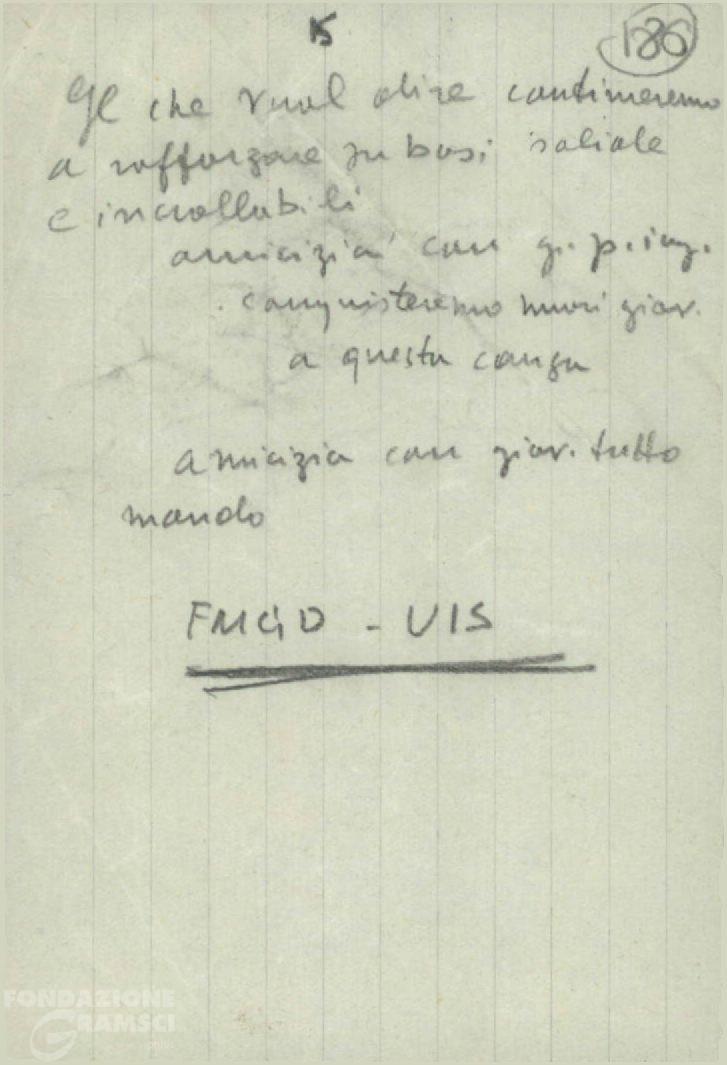 15
186
Il che vuol dire continueremo
a rafforzare su basi salide
e incrollabili
amicizia con g. p. ing.
conquisteremo nuovi giov.
a questa causa
amicizia con giov. tutto
mondo
FMGD - UIS
FONDAZIONE
GRAMSCI